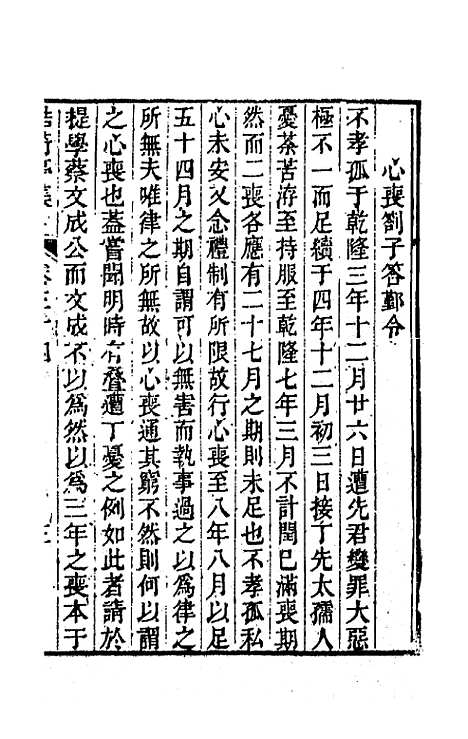 心喪劄子答鄞令
不孝孤于乾隆三年十二月廿六日遭先君變罪大惡
極不一而足續于四年十二月初三日接丁先太孺人
憂荼苦洊至持服至乾隆七年三月不計閏已滿喪期
然而二喪各應有二十七月之期則未足也不孝孤私
心未安又念禮制有所限故行心喪至八年八月以足
五十四月之期自謂可以無害而執事過之以為律之
所無夫唯律之所無故以心喪通其窮不然則何以謂
之心喪也蓋嘗聞明時有疊遭丁憂之例如此者請於
提學蔡文成公而文成不以為然以為三年之喪本于